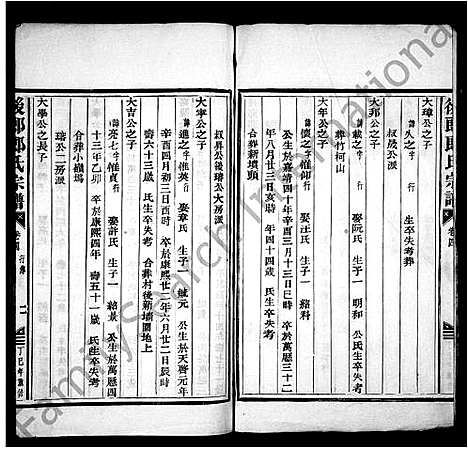 後郎郎氏宗譜 卷四
大璋公之子
諱久之 字惟 行 生卒失考葬
叔晟公派
大邦公之子
諱載之 字 行 娶阮氏 生子一 明和 公氏生卒失考
葬竹柯山
大年公之子
諱 字惟 行 娶汪氏 生子一 紹科
公生於嘉靖四十年辛酉三月十三日巳時 卒於萬歷三十二
年八月廿三日亥時 年四十四歲 氏生卒失考
合葬新墳頭
叔昇公後瑋公大房派
大寧公之子
諱進之 字惟英 行 娶章氏 生子一 斌元 公生於天啓元年
辛酉四月初三日酉時 卒於康熙廿二年六月廿二日辰時
壽六十三歲 氏生卒失考 合葬村後新墳園地上
大吉公之子
諱亮七 字惟貞 行 娶許氏 生子一 紹景 公生於萬歷四
十三年乙卯 卒於康熙四年 壽五十一歲 氏生卒失考
合葬小嶺塢
瑤公二房派
大學公之長子
後郎郎氏宗譜 卷四 行傳 二 丁巳年重修
FamilySearch International